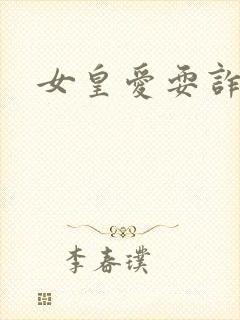 女皇愛耍詐
李春璞